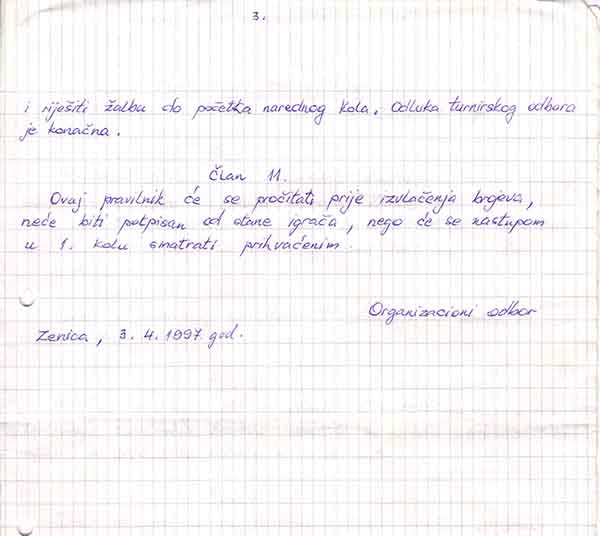 3.
i riješiti žalbu do početka narednog kola. Odluka turnirskog odbora
je konačna.
Član 11.
Ovaj pravilnik će se pročitati prije izvlačenja brojeva,
neće biti potpisan od stane igrača, nego će se nastupom
u 1. kolu smatrati prihvaćenim.
Organizacioni odbor
Zenica, 3. 4. 1997. god.